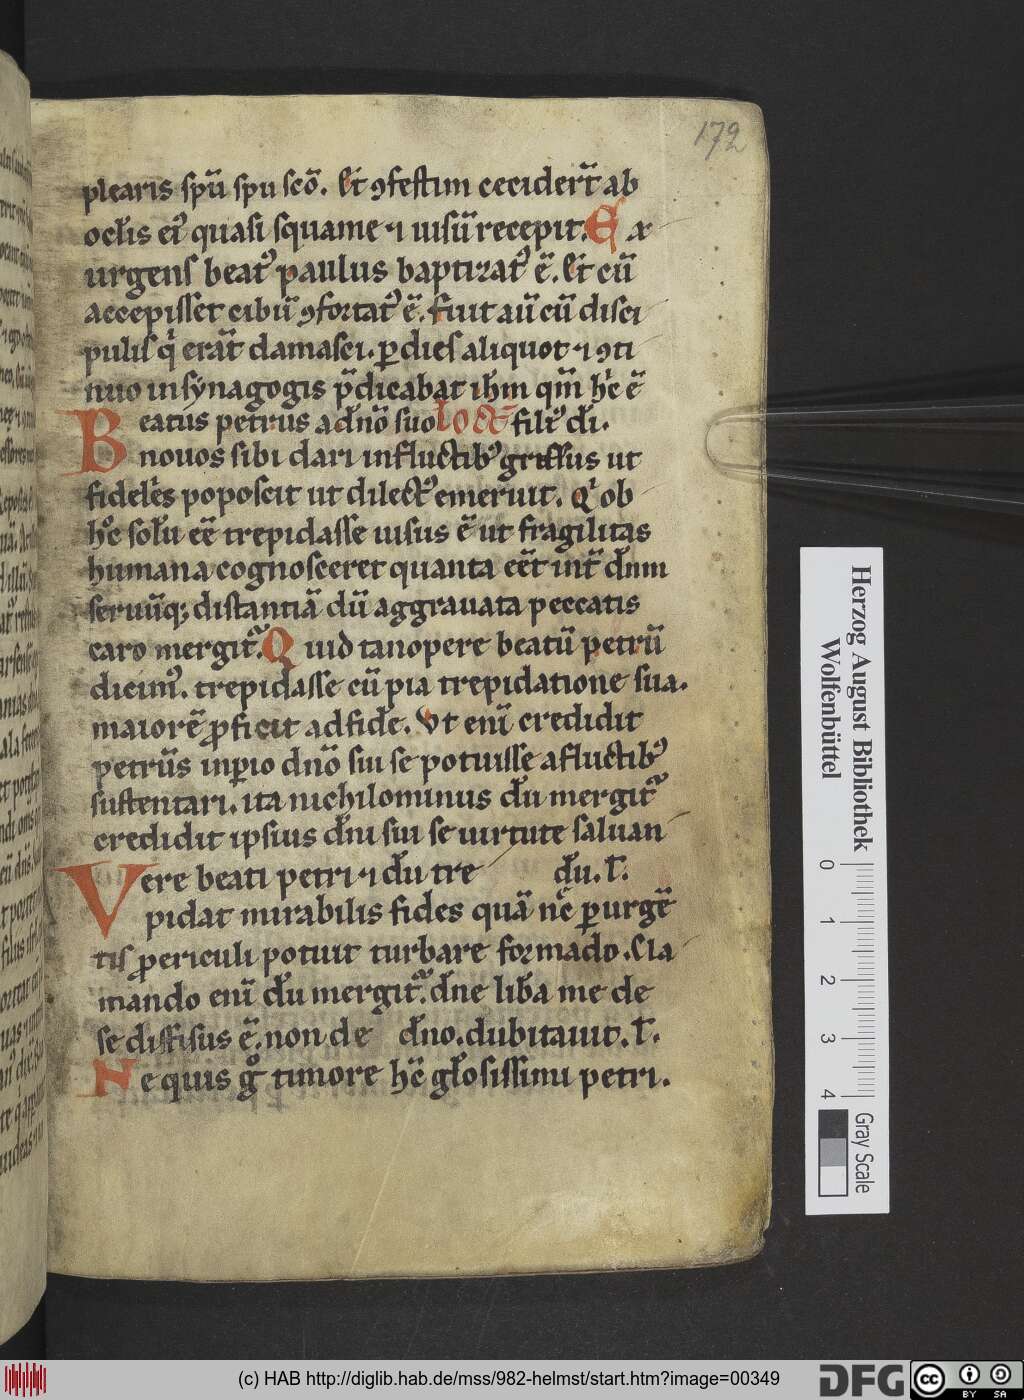 172
plearis spū spu scō. Et ꝯfestim cecidert̄ ab
ocłis eiꝰ quasi squame ⁊ uisū recepit. Ex
urgens beatꝰ paulus baptizatꝰ ē. Et cū
accepisset cibū ꝯfortatꝰ ē. Fuit aū cū disci
pulis q̇ erāt damasci. ꝑ dies aliquot ⁊ ꝯti
nuo in synagogis p̄dicabat ihm qm̄ hic ē
Beatus petrus a dn̄o suo filiꝰ di.
nouos sibi dari influctibꝰ gressus ut
fideles poposcit ut dilectꝰ emeruit. Qi ob
hoc solū eē trepidasse uisus ē ut fragilitas
humana cognosceret quanta eēt int̄ dnm
seruūq; distantiā dū aggrauata peccatis
caro mergit᷑. Quid tanopere beatū petrū
dicimꝰ. trepidasse cū pia trepidatione sua.
maiorē ꝓficit ad fidē. Vt enī credidit
petrus inpio dn̄o sui se potuisse a fluctibꝰ
sustentari. ita nichilominus dū mergit᷑
credidit ipsius dn̄i sui se uirtute saluari
Vere beati petri ⁊ dū tre du. t.
pidat mirabilis fides quā nec ꝑurgē
tis ꝑericuli potuit turbare formado. Cla
mando enī dū mergit᷑. dn̄e liba me de
se diffisus ē. non de dn̄o. dubitauit. t.
Ne quis gͦ timore hc̄ głosissimi petri.
Herzog August Bibliothek
Wolfenbüttel
0 1 2 3 4
Gray Scale
(c) HAB http://diglib.hab.de/mss/982-helmst/start.htm?image=00349
DFG
cc BY SA